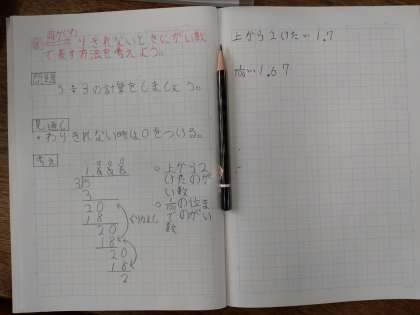 わりきれないときにがい数
で表す方法を考えよう。
問題
5÷3の計算をしましょう。
見通し
・わりきれない時は0をつける。
考え
3)5
3
20
18
20
18
20
18
2
くりかえし
○上から2
けたのが
い数
○1/100の位ま
でのがい
数
上から2けた… 1.7
1/100…1.67